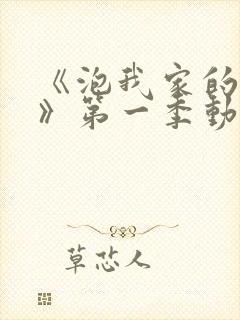 《泡我家的
》第一季動
草芯人